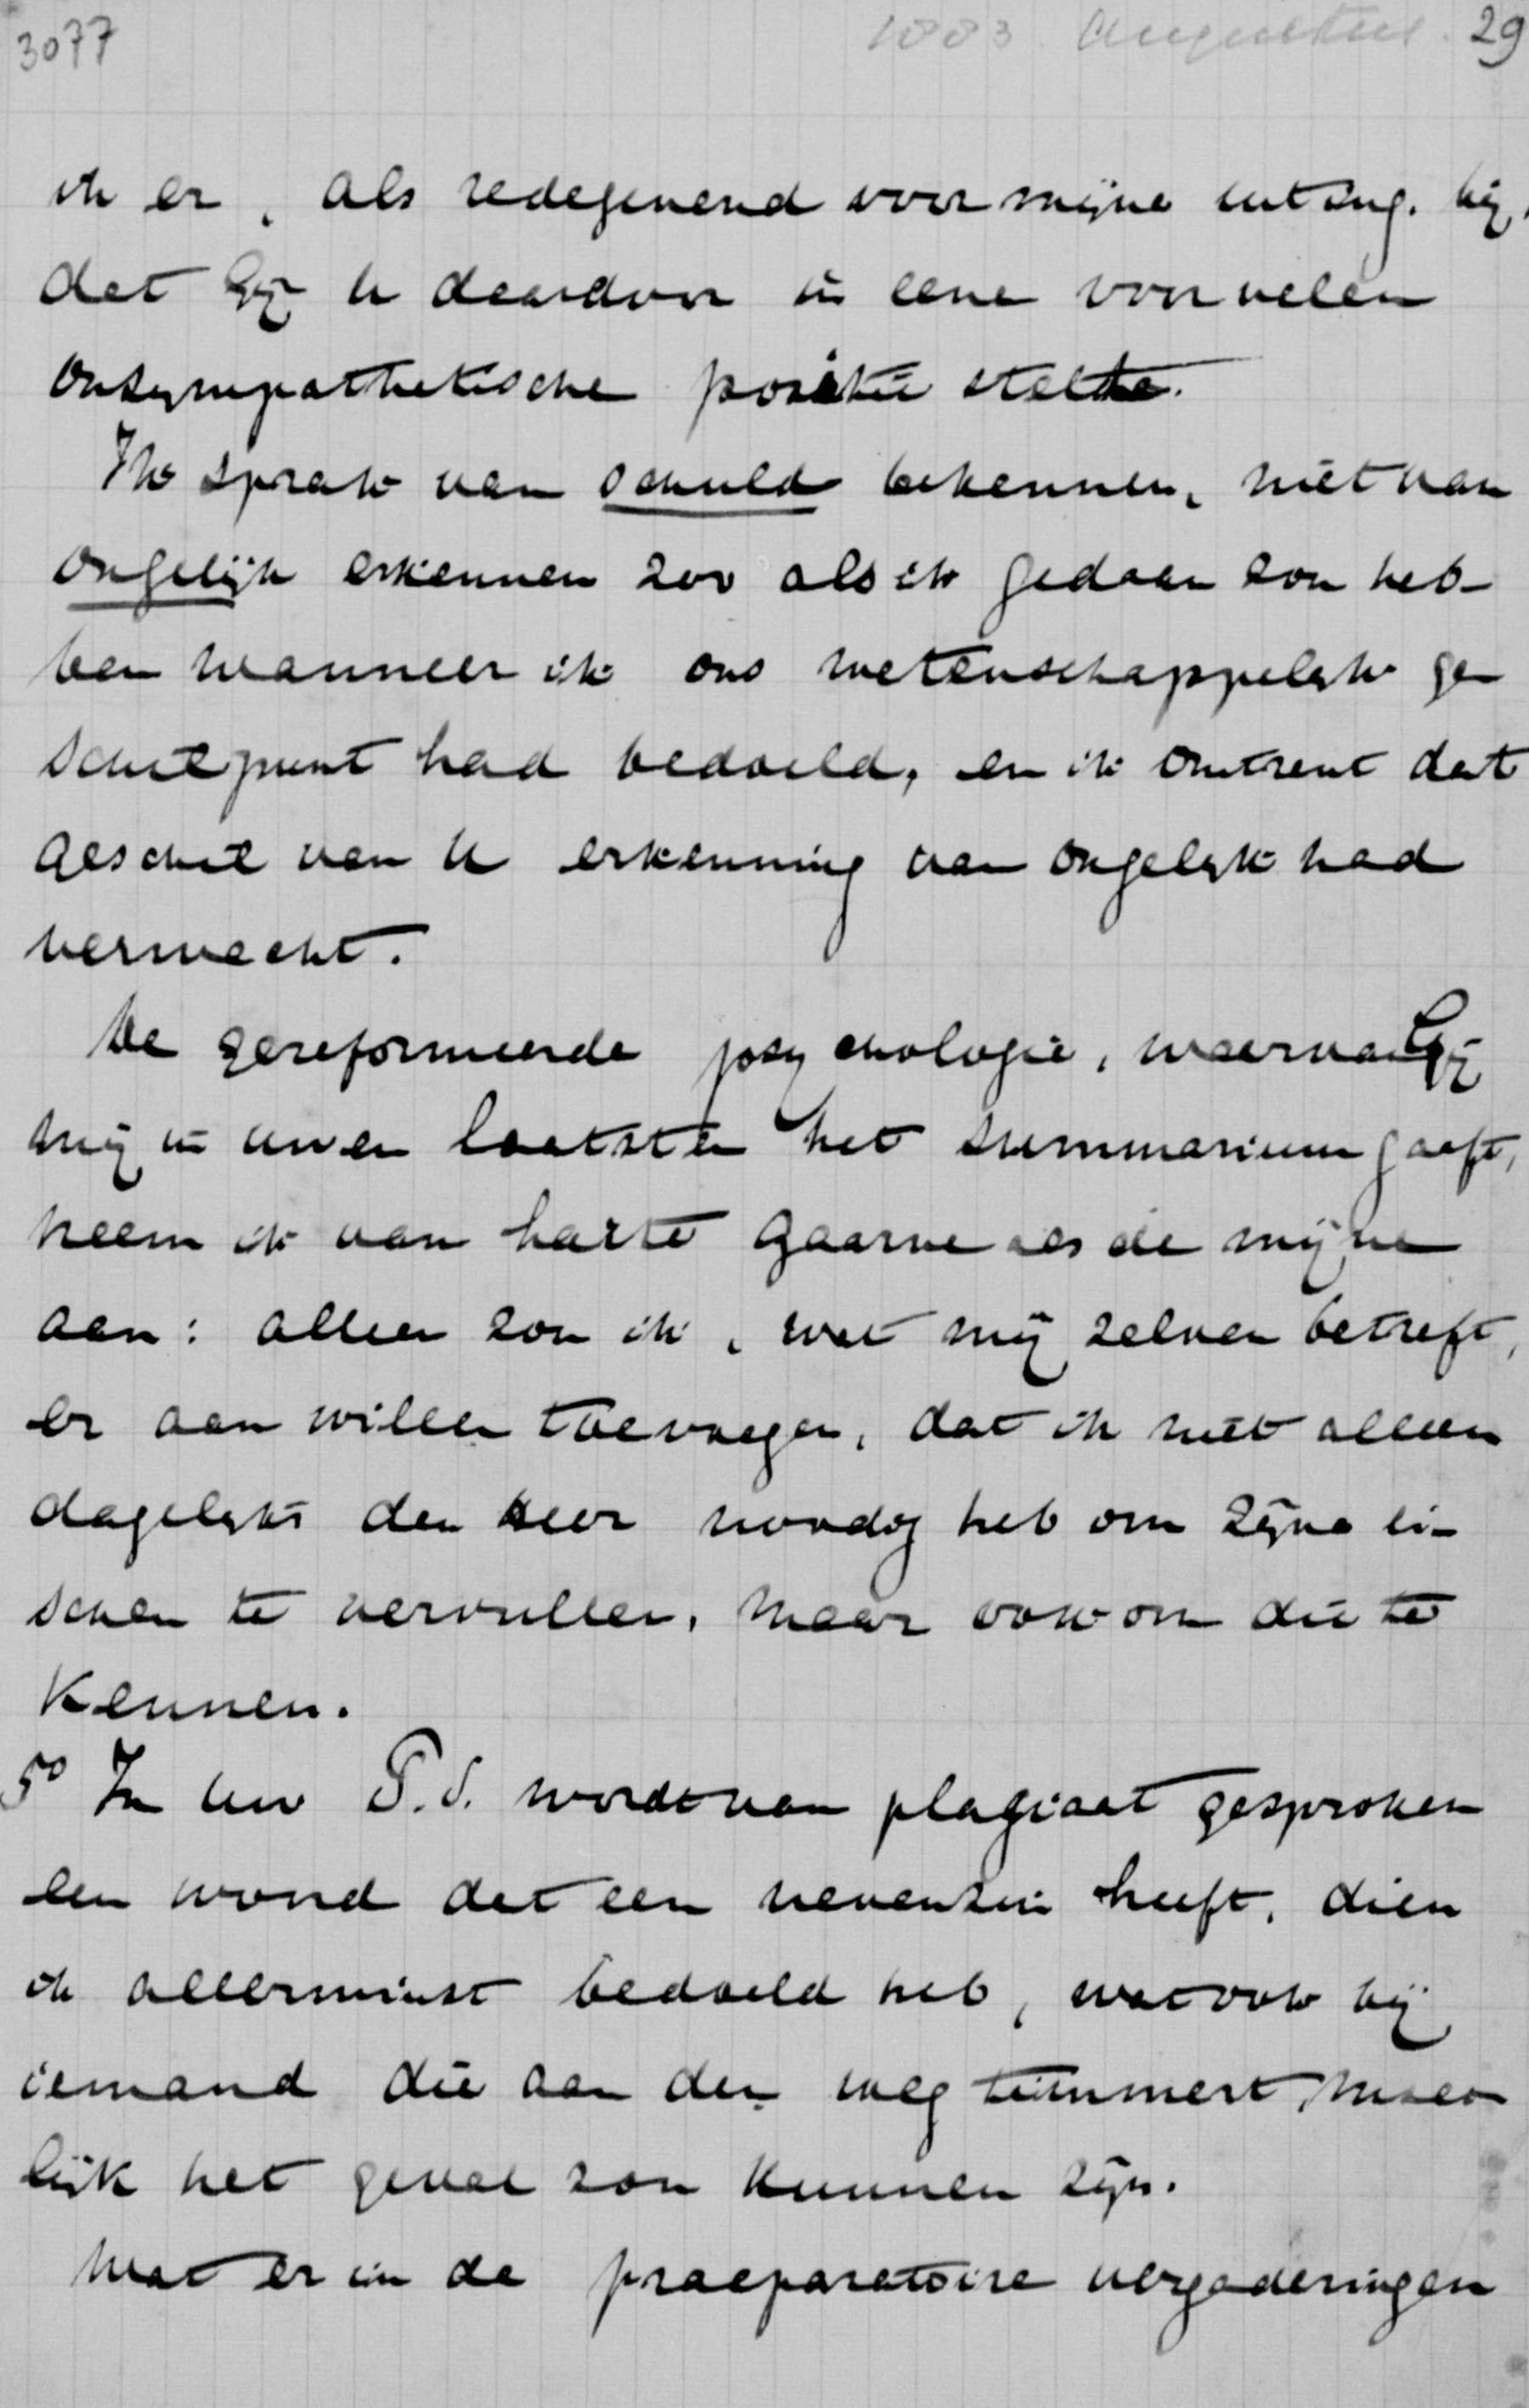 3077 1883 Augustus. 29
ik er, als redegevend voor mijne uiting. bij,
dat Gij U daardoor in eene voor velen
onsympathetische positie stelde.
Ik sprak van schuld bekennen, niet van
ongelijk erkennen zoo als ik gedaan zou heb-
ben wanneer ik ons wetenschappelijk ge
schilpunt had bedoeld, en ik omtrent dat
geschil van U erkenning van ongelijk had
verwacht.
De gereformeerde psychologie, waarvan Gij
mij in uwen laatsten het summarium gaaft,
neem ik van harte gaarne als de mijne
aan: alleen zou ik, wat mij zelven betreft,
er aan willen toevoegen, dat ik niet alleen
dagelijks den Heer noodig heb om zijne ei-
schen te vervullen, maar ook om die te
kennen.
5o In uw P.S. wordt van plagiaat gesproken
een woord dat een nevenzin heeft, dien
ik allerminst bedoeld heb, wat ook bij
iemand die aan den weg timmert, moei
lijk het geval zou kunnen zijn.
Wat er in de praeparatoire vergaderingen